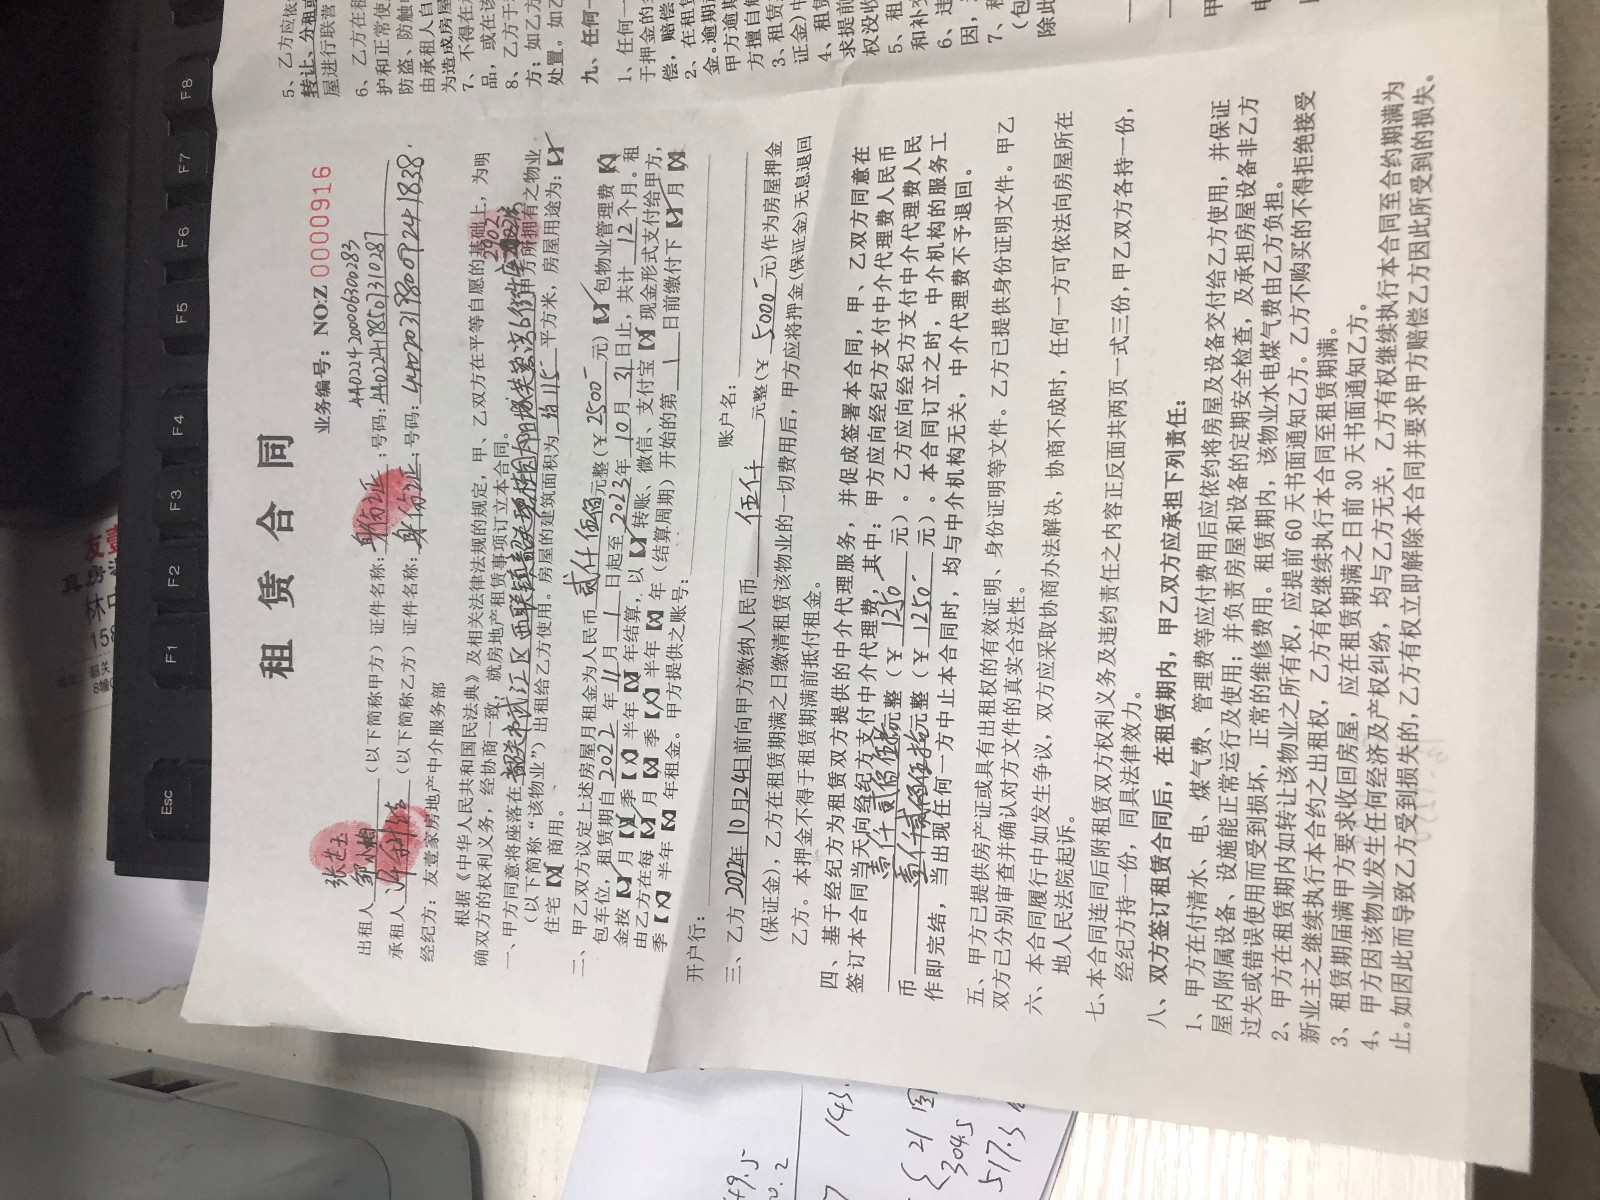 租赁合同
业务编号：NO:Z 0000916
出租人 （以下简称甲方）证件名称：身份证；号码：
承租人 （以下简称乙方）证件名称：身份证；号码：
经纪方：友壹家房地产中介服务部
根据《中华人民共和国民法典》及相关法律法规的规定，甲、乙双方在平等自愿的基础上，为明
确双方的权利义务，经协商一致，就房地产租赁事项订立本合同。
一、甲方同意将座落在韶关市浈江区 甲方所拥有之物业
（以下简称“该物业”）出租给乙方使用。房屋的建筑面积为 约115 平方米，房屋用途为：【√】
住宅【X】商用。
二、甲乙双方议定上述房屋月租金为人民币 贰仟伍佰元整（￥2500 元）【X】包物业管理费【X】
包车位，租赁期自2022年11月1日起至2023年10月31日止，共计12个月。租
金按【√】月【X】季【X】半年【X】年结算，以【√】转账、微信、支付宝【X】现金形式支付给甲方，
由乙方在每【√】月【X】季【X】半年【X】年（结算周期）开始的第 1 日前缴付下【√】月【X】
季【X】半年【X】年租金。甲方提供之账号：
开户行： 账户名：
三、乙方2022年10月24日前向甲方缴纳人民币 伍仟 元整（￥5000 元）作为房屋押金
（保证金），乙方在租赁期满之日缴清租赁该物业的一切费用后，甲方应将押金（保证金）无息退回
乙方。本押金不得于租赁期满前抵付租金。
四、基于经纪方为租赁双方提供的中介代理服务，并促成签署本合同，甲、乙双方同意在
签订本合同当天向经纪方支付中介代理费，其中：甲方应向经纪方支付中介代理费人民币
壹仟贰佰伍拾元整（￥1250 元）。乙方应向经纪方支付中介代理费人民
币 壹仟贰佰伍拾元整（￥1250 元）。本合同订立之时，中介机构的服务工
作即完结，当出现任何一方中止本合同时，均与中介机构无关，中介代理费不予退回。
五、甲方已提供房产证或具有出租权的有效证明、身份证明等文件。乙方已提供身份证明文件。甲乙
双方已分别审查并确认对方文件的真实合法性。
六、本合同履行中如发生争议，双方应采取协商办法解决，协商不成时，任何一方可依法向房屋所在
地人民法院起诉。
七、本合同连同后附租赁双方权利义务及违约责任之内容正反面共两页一式三份，甲乙双方各持一份，
经纪方持一份，同具法律效力。
八、双方签订租赁合同后，在租赁期内，甲乙双方应承担下列责任：
1、甲方在付清水、电、煤气费、管理费等应付费用后应依约将房屋及设备交付给乙方使用，并保证
屋内附属设备、设施能正常运行及使用；并负责房屋和设备的定期安全检查，及承担房屋设备非乙方
过失或错误使用而受到损坏，正常的维修费用。租赁期内，该物业水电煤气费由乙方负担。
2、甲方在租赁期内如转让该物业之所有权，应提前60天书面通知乙方。乙方不购买的不得拒绝接受
新业主之继续执行本合约之出租权，乙方有权继续执行本合同至租赁期满。
3、租赁期届满甲方要求收回房屋，应在租赁期满之日前30天书面通知乙方。
4、甲方因该物业发生任何经济及产权纠纷，均与乙方无关，乙方有权继续执行本合同至合约期满为
止。如因此而导致乙方受到损失的，乙方有权立即解除本合同并要求甲方赔偿乙方因此所受到的损失。
5、乙方应依
转让、分租或
屋进行联营
6、乙方在租
护和正常使
防盗、防触
由承租人自
为造成房屋
7、不得在
品，或在该
8、乙方于
方；如乙方
处置。如乙
九、任何一
1、任何一
于押金的
偿，赔偿
2、在租
金。逾期
甲方逾期
方擅自解
3、租赁
证金）中
4、租赁
求提前
权没收
5、租
和补交
6、违
因，
7、
（包
除此
Esc
F1
F2
F3
F4
F5
F6
F7
F8
友壹
49.5
0.2
143.
21
304.5
517.5